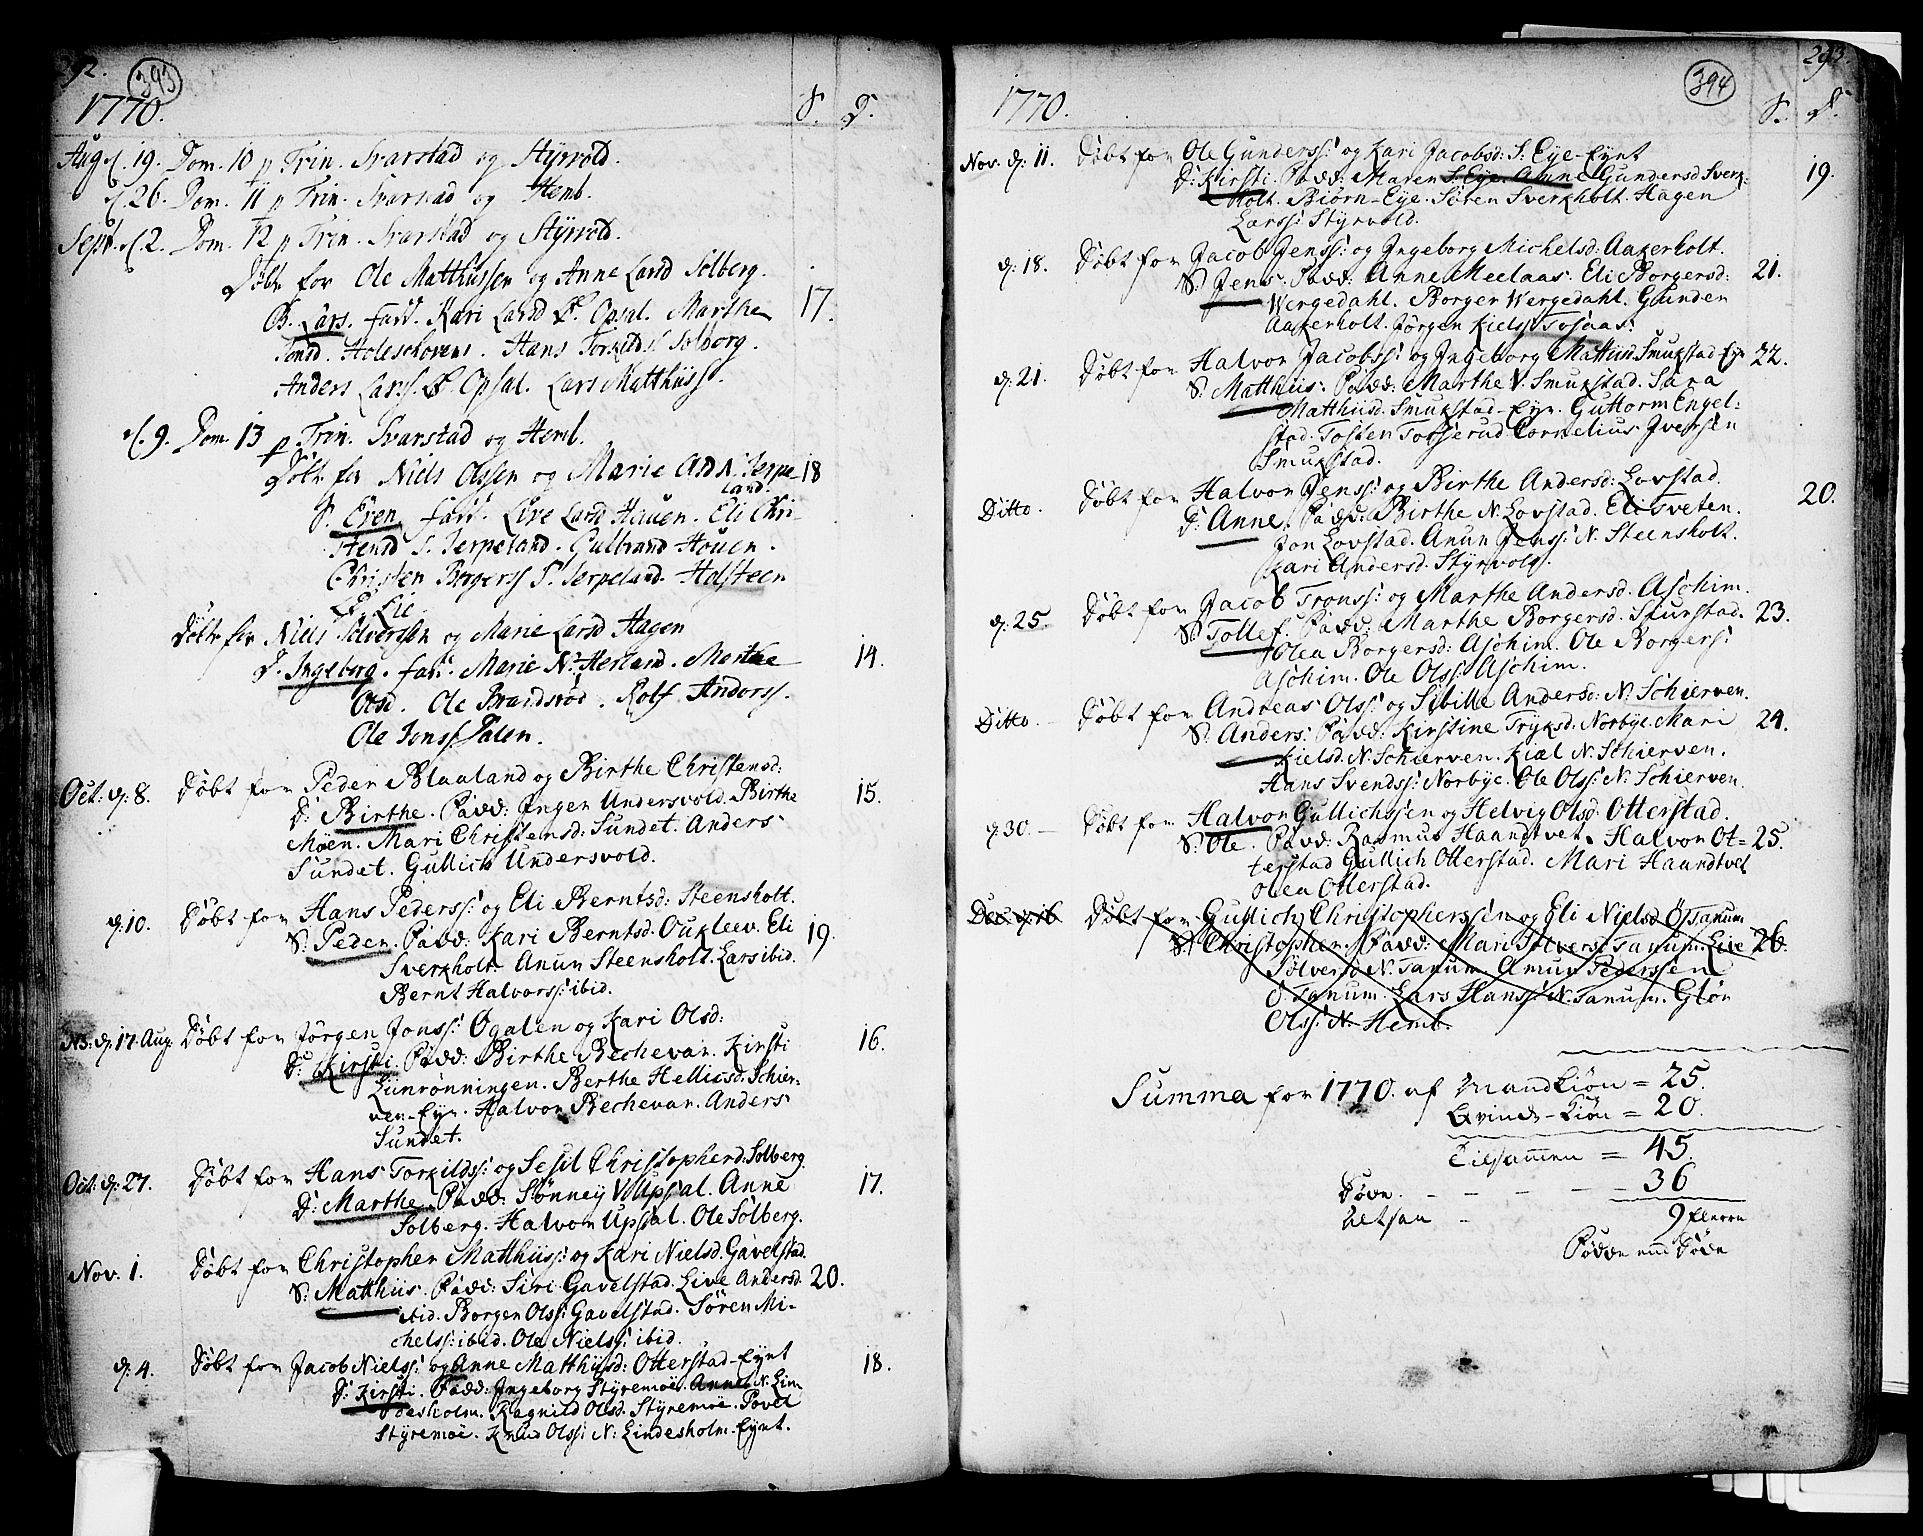 292. 393
1770. S. D.
Aug d. 19. Dom. 10 p Trin. Svarstad og Styrvold.
d. 26. Dom. 11 p Trin. Svarstad og Hemb.
Sept. d. 2. Dom. 12 p Trin. Svarstad og Styrvold.
Døbt for Ole Matthissen og Anne Larsd Solberg.
S. Lars. fadd. Kari Larsd Opsal. Marthe 17.
Tonsd. Holeschovens. Hans Torkilds. Solberg.
Anders Larss. Opsal. Lars Matthiss.
d. 9. Dom. 13 p Trin. Svarstad og Hemb.
Døbt for Niels Olssen og Marie And N. Serpe- 18
land.
S. Even fadd. Live Larsd Houen. Eli Chri-
stensd S. Serpeland. Gulbrand Houen.
Christen Borgerss S. Serpeland. Holsteen
Lie.
Døbt for Niels Sølverssen og Marie Larsd Hagen
D. Ingeborg. fadd. Marie N. Herland. Marthe 14.
Olsd. Ole Brandsrød. Rolf Anderss.
Ole Jonss Dalen.
Oct: d: 8. Døbt for Peder Blaaland og Birthe Christensd:
D: Birthe. Fadd: Inger Undersvold. Birthe 15.
Moen. Mari Christensd: Sundet. Anders
Sundet. Gullich Undersvold.
d: 10. Døbt for Hans Pederss: og Eli Berntsd: Steensholt.
S: Peder. Fadd: Kari Berntsd. Oukleev. Eli 19.
Sverkholt. Anun Steensholt. Lars ibid.
Bernt Halvorss: ibid.
NB: d: 17. Aug. Døbt for Jørgen Jonss: Øgalen og Kari Olsd:
D: Kirsti. Fadd: Birthe Bechevar. Kirsti 16.
Liinrønningen. Berthe Hellicsd: Schier-
ven-Eye. Halvor Bechevar. Anders
Sundet.
Oct: d: 27. Døbt for Hans Torkildss: og Sesil Christopherd: Solberg.
D: Marthe. Fadd: Sønney V. Upsal. Anne 17.
Solberg. Halvor Upsal. Ole Solberg.
Nov. 1. Døbt for Christopher Matthiss: og Kari Nielsd. Gavelstad.
S: Matthiis. Fadd: Siri Gavelstad. Live Andersd. 20.
ibid. Borger Olss: Gavelstad. Søren Mi-
chelss: ibid. Ole Nielss: ibid.
d: 4. Døbt for Jacob Nielss: og Anne Matthiisd: Otterstad-Eynt 18.
D: Kirsti. Fadd: Ingeborg Styremoe. Anne N. Lin-
desholm. Ragnild Olsd. Styremoe. Povel
Styremoe. Knud Olss: N. Lindesholm-Eynt.
394 293.
1770. S. D.
Nov. d: 11. Døbt for Ole Gunderss: og Kari Jacobsd: S. Eye-Eynt
D: Kirsti. Fadd: Maren S. Eye. Anne Gundersd Sverk- 19.
holt. Biørn-Eye. Søren Sverkholt. Hagen
Larss: Styrvold.
d: 18. Døbt for Jacob Jenss: og Ingeborg Michelsd: Aakerholt.
S: Jens. Fadd: Anne Meelaas. Eli Borgersd: 21.
Wergedahl. Borger Wergedahl. Gunder
Aakerholt. Jørgen Kiels: Tosaas.
d: 21. Døbt for Halvor Jacobss: og Ingeborg Matthisd. Smukstad-Eye 22.
S: Matthiis. Fadd: Marthe V. Smukstad. Sara
Matthiisd. Smukstad-Eye. Guttorm Engel-
stad. Tosten Tosserud. Cornelius Iversen
Smukstad.
Ditto. Døbt for Halvor Jenss: og Birthe Andersd: Lovstad. 20.
D: Anne. Fadd: Birthe N. Lovstad. Eli Tveten.
Jon Lovstad. Anun Jenss: N. Steensholt.
Kari Andersd. Styrvold.
d: 25. Døbt for Jacob Tronss: og Marthe Andersd. Aschim.
S: Tollef. Fadd: Marthe Borgersd. Skurstad. 23.
Olea Borgersd: Aschim. Ole Borgers:
Aschim. Ole Olss: Aschim.
Ditto. Døbt for Andreas Olss: og Sibille Andersd: N. Schierven.
S: Anders. Fadd: Kirstine Tryksd. Norbye. Mari 24.
Kielsd. N. Schierven. Kiæl N. Schierven.
Hans Svendss: Norbye. Ole Olss: N. Schierven.
d. 30. Døbt for Halvor Gullichssen og Helvig Olsd. Otterstad.
S: Ole. Fadd: Rasmus Haandtvet. Halvor Ot- 25.
terstad. Gullich Otterstad. Mari Haandtvet
Olea Otterstad.
Dec: d: 16 Døbt for Gullich Christopherssen og Eli Nielsd Ø. Tanum
S: Christopher. Fadd: Mari Sølversd Tanum. Live 26.
Sølversd N. Tanum. Amun Pederssen
Ø. Tanum. Lars Hanss: N. Tanum. Glør
Olss: N. Hemb.
Summa for 1770. af Mandkiøn = 25.
Qvinde-kiøn = 20.
Tilsammen = 45.
Døde. - - - - 36
Altsaa - 9 fleere
Fødde end Døde